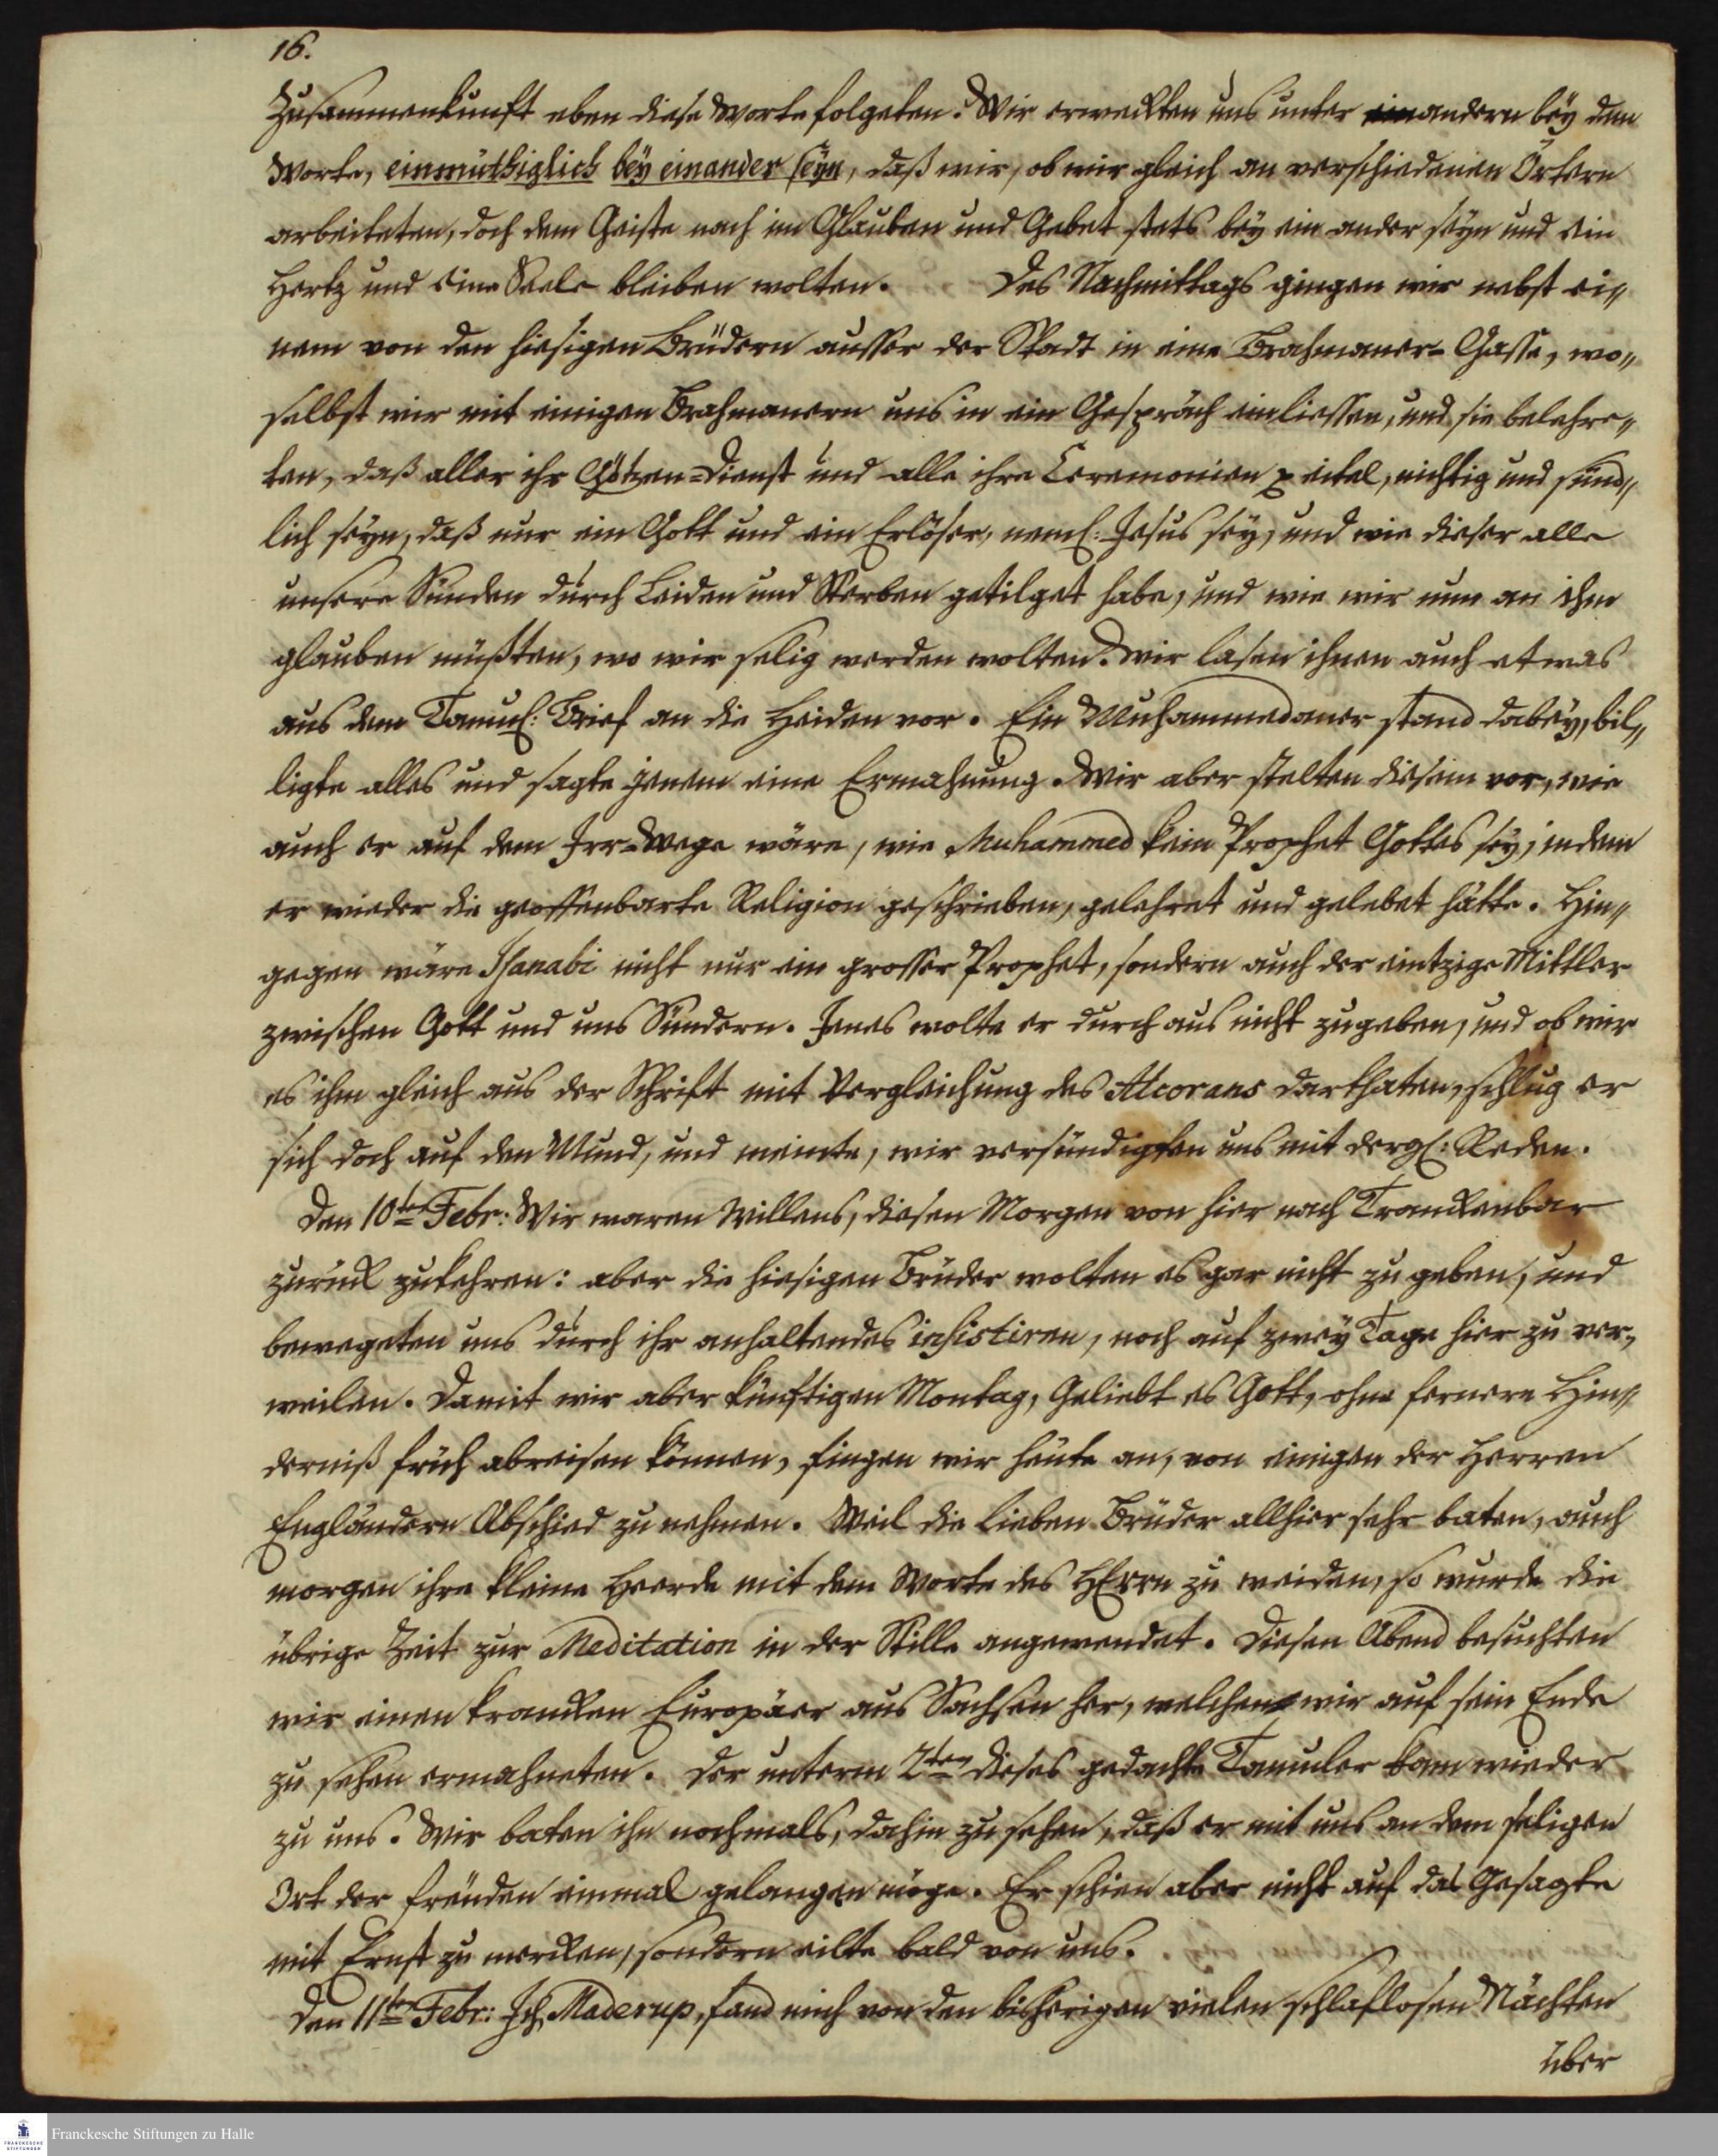 16.
Zusammenkunft eben diese Worte folgeten. Wir erweckten uns unter einandern bëy dem
Worte, einmüthiglich bëy einander sëyn, daß wir, ob wir gleich an verschiedenen Örtern
arbeiteten, doch dem Geiste nach im Glauben und Gebet stets bëy ein ander sëyn und ein
Hertz und eine Seele bleiben wolten. Des Nachmittags gingen wir nebst ei„
nem von den hiesigen Brüdern ausser der Stadt in eine Brahmaner-Gasse, wo„
selbst wir mit einigen Brahmanern uns in ein Gespräch einliessen, und sie belehre„
ten, daß aller ihr Götzen-Dienst und alle ihre Ceremonien p eitel, nichtig und sünd„
lich sëyn, daß nur ein Gott und ein Erlöser, neml: Jesus sëy, und wie dieser alle
unsere Sünden durch Leiden und Sterben getilget habe, und wie wir nun an ihm
glauben müßten, wo wir selig werden wolten. Wir lasen ihnen auch etwas
aus dem Tamul: Brief an die Heiden vor. Ein Muhammedaner stand dabëy, bil„
ligte alles und sagte jenem eine Ermahnung. Wir aber stelten diesem vor, wie
auch er auf dem Irr-Wege wäre, wie Muhammed kein Prophet Gottes sëy, indem
er wieder die geoffenbarte Religion geschrieben, gelehret und gelebet hätte. Hin„
gegen wäre Isanabi nicht nur ein grosser Prophet, sondern auch der eintzige Mittler
zwischen Gott und uns Sündern. Jenes wolte er durch aus nicht zugeben, und ob wir
es ihm gleich aus der Schrift mit Vergleichung des Alcorans darthaten, schlug er
sich doch auf den Mund, und meinte, wir versündigten uns mit dergl: Reden.
Den 10ten Febr: Wir waren Willens, diesen Morgen von hier nach Tranckenbar
zurück zukehren: aber die hiesigen Brüder wolten es gar nicht zu geben, und
bewegeten uns durch ihr anhaltendes insistiren, noch auf zwëy Tage hier zu ver„
weilen. Damit wir aber künftigen Montag, Geliebt es Gott, ohne fernere Hin„
derniß früh abreisen können, fingen wir heute an, von einigen der Herren
Engländern Abschied zu nehmen. Weil die lieben Brüder allhier sehr baten, auch
morgen ihre kleine Heerde mit dem Worte des HErrn zu weiden, so wurde die
übrige Zeit zur Meditation in der Stille angewendet. Diesen Abend besuchten
wir einen krancken Europäer aus Sachsen her, welchen wir auf sein Ende
zu sehen ermahneten. Der unterm 2ten dieses gedachte Tamuler kam wieder
zu uns. Wir baten ihn nochmals, dahin zu sehen, daß er mit uns an dem seligen
Ort der Freuden einmal gelangen möge. Er schien aber nicht auf das Gesagte
mit Ernst zu mercken, sondern eilte bald von uns.
Den 11ten Febr: Ich, Maderup, fand mich von den bisherigen vielen schlaflosen Nächten
über
FRANCKESCHE STIFTUNGEN
Franckesche Stiftungen zu Halle